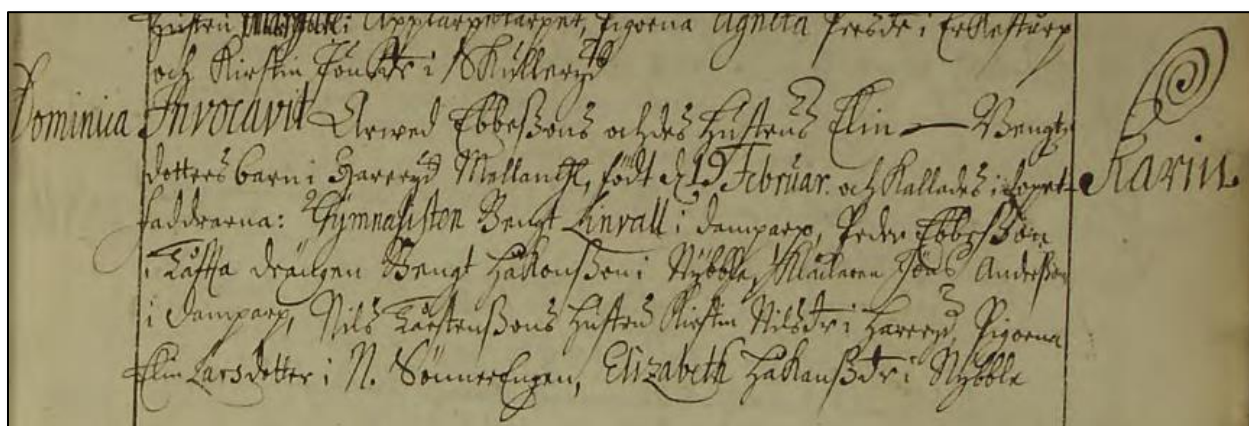 Hustru i Applarpetorpet, Pigorna Agneta Persdr i Erkestorp
och Kirstin Jönsdr i Skulleryd
Dominica Invocavit Arwed Ebbeßons och des Hustrus Elin — Bengtz
dotters barn i Hareryd Mellantl, född d 19 Februar. och Kallades i dopet Karin
faddrarna: Gymnasisten Bengt Linvall i damparp, Peder Ebbeßon
i drängen Bengt Håkonßon i Nybble, Jöns Anderßon
i damparp, Nils Hustru Kirstin Nilsdr i Hareryd, Pigorna
Elin Larsdotter i N. SönnerEngen, Elizabeth Håkanßdr i Nybble